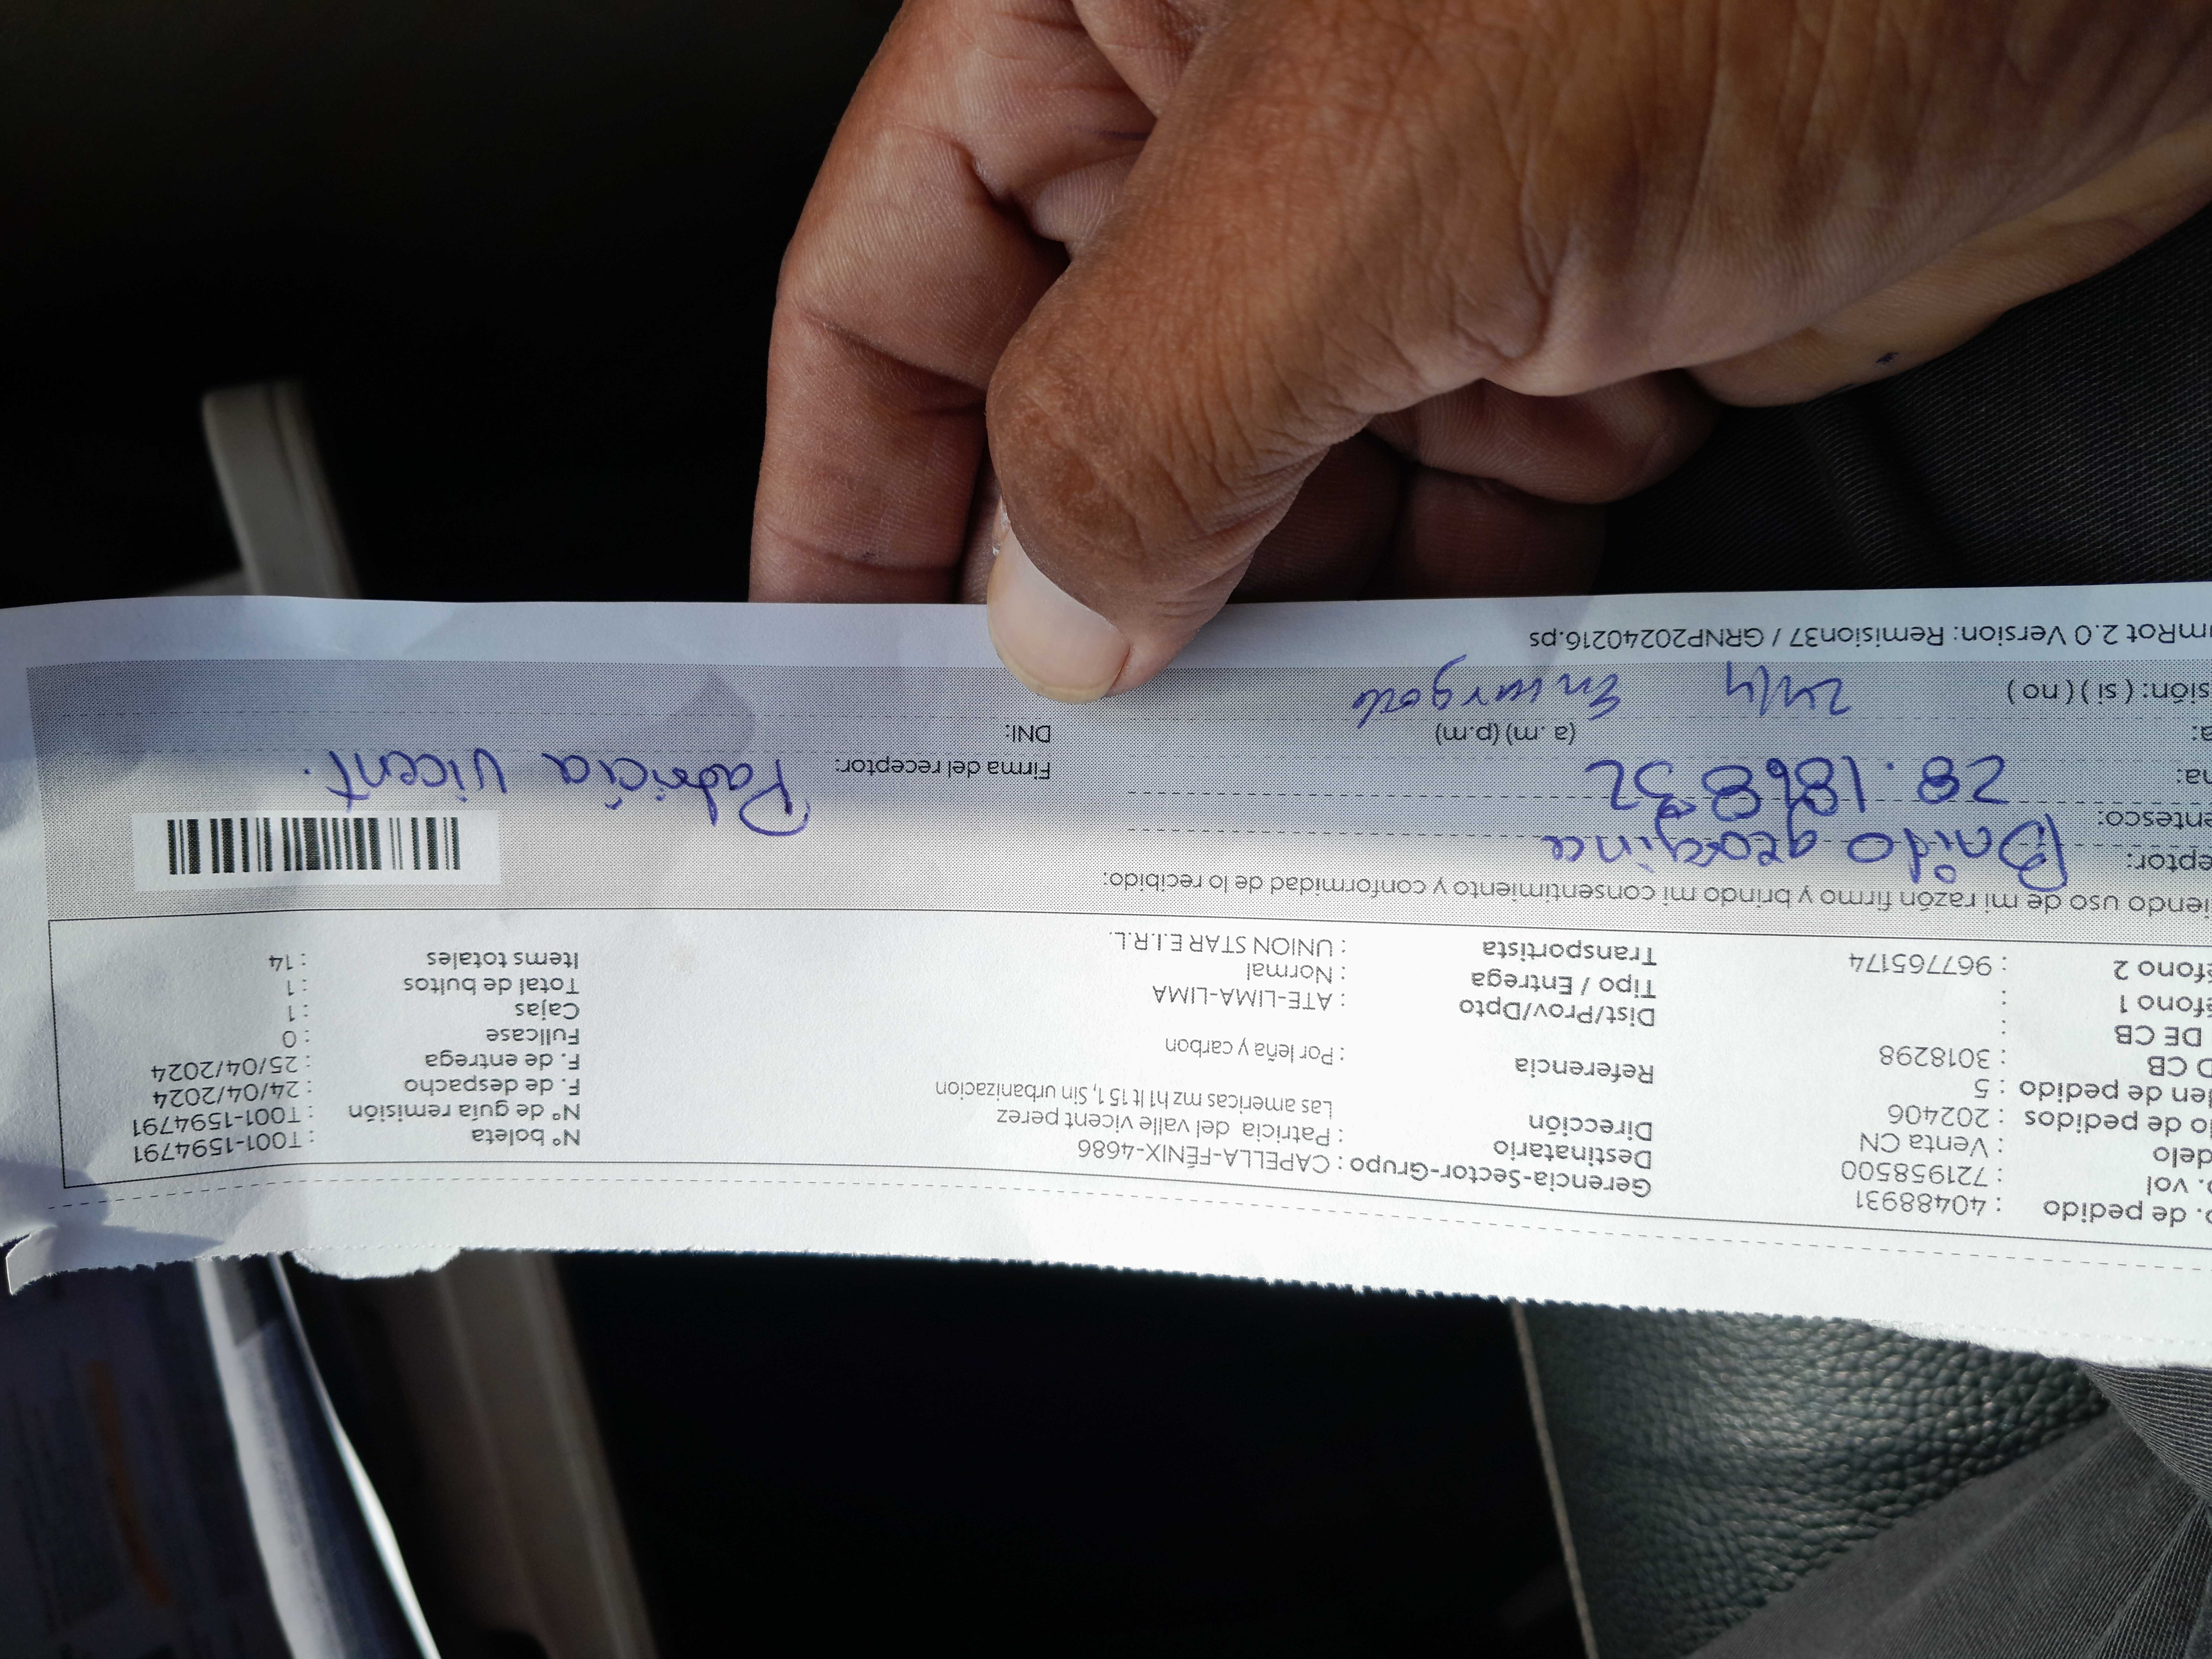 . de pedido : 40488931
. vol : 721958500
delo : Venta CN
o de pedidos : 202406
en de pedido : 5
D CB : 3018298
DE CB :
éfono 1 :
éfono 2 : 967765174
Gerencia-Sector-Grupo : CAPELLA-FÉNIX-4686
Destinatario : Patricia del valle vicent perez
Dirección Las americas mz h1 lt 15 1, Sin urbanizacion
Referencia : Por leña y carbon
Dist/Prov/Dpto : ATE-LIMA-LIMA
Tipo / Entrega : Normal
Transportista : UNION STAR E.I.R.L.
N° boleta : T001-1594791
N° de guía remisión : T001-1594791
F. de despacho : 24/04/2024
F. de entrega : 25/04/2024
Fullcase : 0
Cajas : 1
Total de bultos : 1
Items totales : 14
iendo uso de mi razón firmo y brindo mi consentimiento y conformidad de lo recibido:
eptor: georgina
entesco:
na: 28.186832
Firma del receptor: Patricia Vicent.
a: (a.m) (p.m)
DNI:
sión: ( si ) ( no ) 24/4
mRot 2.0 Version: Remision37 / GRNP20240216.ps